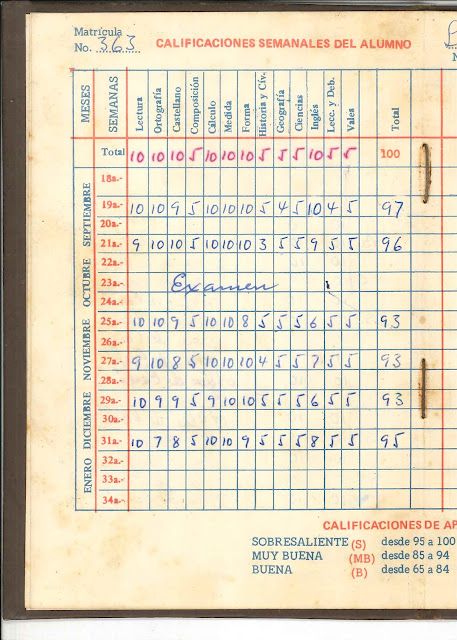 Matrícula
No. 363
CALIFICACIONES SEMANALES DEL ALUMNO
MESES SEMANAS Lectura Ortografía Castellano Composición Cálculo Medida Forma Historia y Cív. Geografía Ciencias Inglés Lecc. y Deb. Vales Total
Total 10 10 10 5 10 10 10 5 5 5 10 5 5 100
SEPTIEMBRE
18a.-
19a.- 10 10 9 5 10 10 10 5 4 5 10 4 5 97
20a.-
21a.- 9 10 10 5 10 10 10 3 5 5 9 5 5 96
OCTUBRE
22a.-
23a.- Examen
24a.-
NOVIEMBRE
25a.- 10 10 9 5 10 10 8 5 5 5 6 5 5 93
26a.-
27a.- 9 10 8 5 10 10 10 4 5 5 7 5 5 93
28a.-
DICIEMBRE
29a.- 10 9 9 5 9 10 10 5 5 5 6 5 5 93
30a.-
31a.- 10 7 8 5 10 10 9 5 5 5 8 5 5 95
ENERO
32a.-
33a.-
34a.-
CALIFICACIONES DE AP
SOBRESALIENTE (S) desde 95 a 100
MUY BUENA (MB) desde 85 a 94
BUENA (B) desde 65 a 84